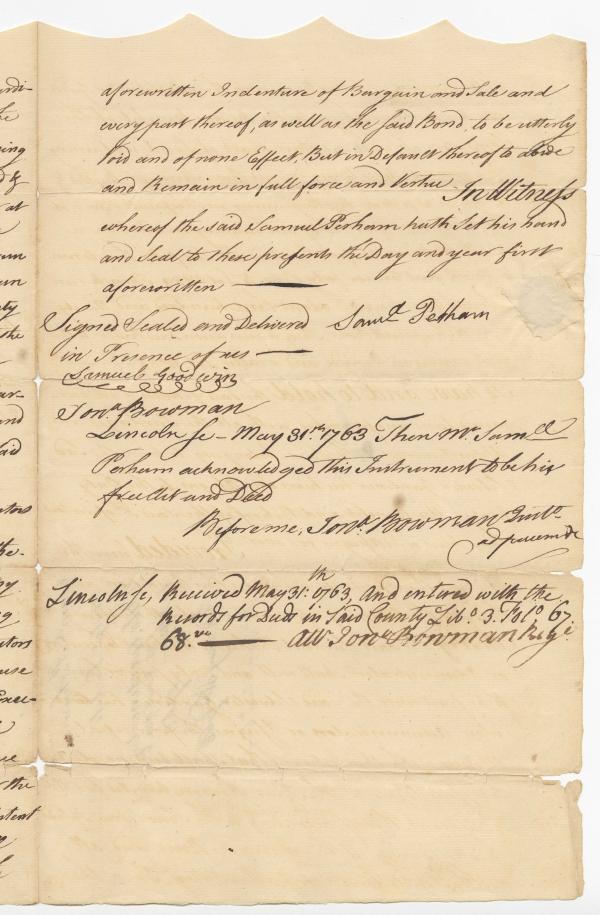 aforewritten Indenture of Bargain and Sale and
every part thereof, as well as the said Bond, to be utterly
Void and of none Effect, But in Default thereof to abide
and Remain in full force and Vertue In Witness
whereof the said Samuel Perham hath Set his hand
and Seal to these presents the Day and year first
aforewritten
Signed Sealed and Delivered Saml. Perham
in Presence of us
Samuel Goodwin
Jona. Bowman
Lincoln ss - May 31.th 1763 Then Mr. Samll
Perham acknowledged this Instrument to be his
free Act and Deed
Before me, Jona. Bowman Justo.
ad pacem &c
Lincoln ss, Received May 31:th 1763, And entered with the
Records for Deeds in Said County Libo. 3. Folo 67.
68.vo Att. Jona. Bowman Regr.